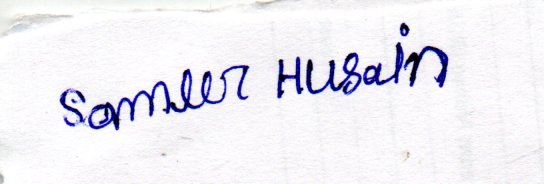 Sameer Husain